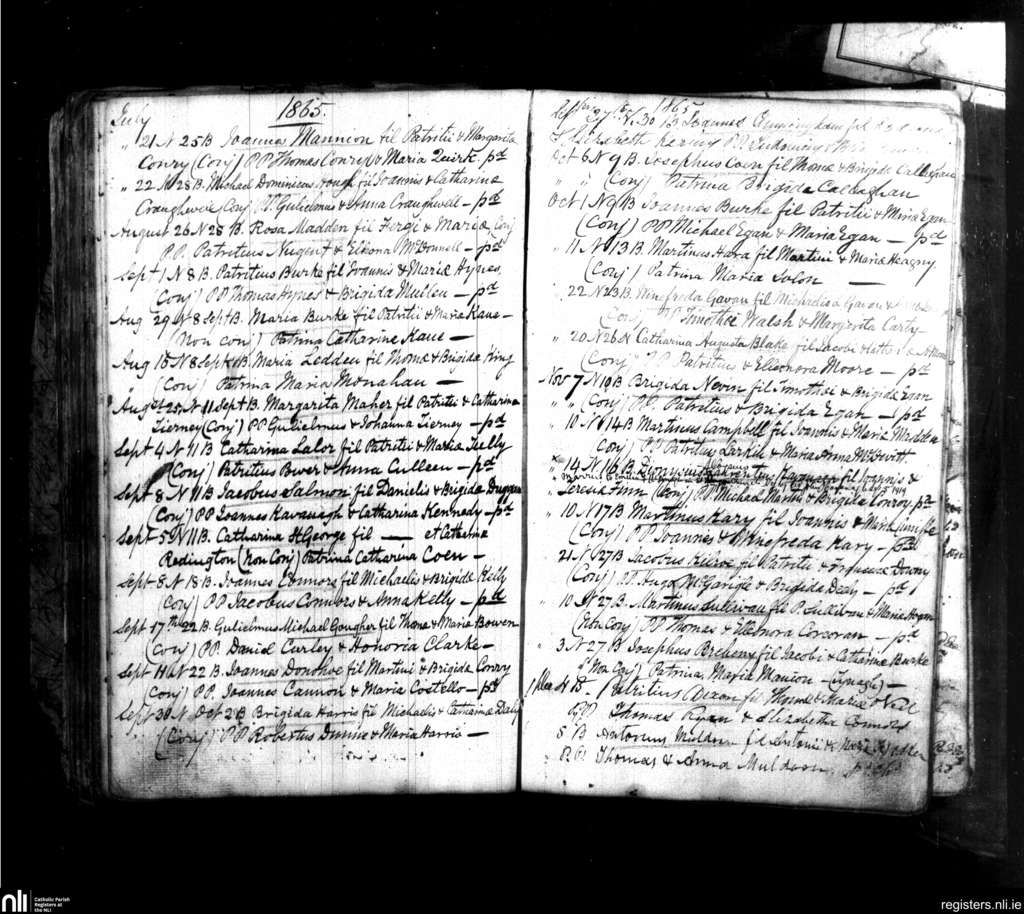 July 1865.
21 N 25 B Joannes Mannion fil Patritii & Margarita
Conry (Conj) PP Thomas Conry & Maria Quirk pd
" 22 N 28 B. Michael Dominicus Hough fil Joannis & Catharina
Craughwell Conj PP. Gulielmus & Anna Craughwell – pd
August 26 N 28 B. Rosa Madden fil Fergi & Maria Conj
PP. Patritius Nugent & Elleona McDonnell – pd
Sept 1 N 8 B. Patritius Burke fil Joannis & Mariæ Hynes
(Conj) PP Thomas Hynes & Brigida Mullen – pd
Aug 29 N 8 Sept B. Maria Burke fil Patritii & Maria Kane –
(Non Conj) Patrina Catharine Kane –
Aug 18 N 8 Sept B. Maria Ledden fil Thomæ & Brigida King
(Conj) Patrina Maria Monahan –
Augst 25 N 11 Sept B. Margarita Maher fil Patritii & Catharina
Tierney (Conj) PP Gulielmus & Johanna Tierney – pd
Sept 4 N 11 B Catharina Lalor fil Patritii & Maria Skelly
(Conj) Patritius Bower & Anna Cullen – pd
Sept 8 N 11 B Jacobus Salmon fil Danielis & Brigida Duggan
(Conj) PP Joannes Kavanagh & Catharina Kennedy – pd
Sept 5 N 11 B. Catharina St George fil — et Catherina
Redington (Non Conj) Patrina Catharina Coen –
Sept 8 N 18 B. Joannes Connors fil Michaelis & Brigida Kelly
(Conj) PP Jacobus Connors & Anna Kelly – pd
Sept 17 N 22 B Gulielmus Michael Gougher fil Thomæ & Maria Bowen
(Conj) PP. Daniel Curley & Honoria Clarke –
Sept 14 N 22 B Joannes Donohoe fil Martini & Brigida Conry
(Conj) PP. Joannes Cannon & Maria Costello – pd
Sept 30 N Oct 2 B Brigida Harris fil Michaelis & Catharinæ Daly
(Conj) PP Robertus Dunne & Maria Harris –
1865
27 N. 30 B Joannes Cunningham fil
Elizabeth PP
Oct 6 N 9 B. Josephus Coen fil Thomæ & Brigida Callaghan
" " (Conj) Patrina Brigida Callaghan
Oct 1 N 9 B Joannes Burke fil Patritii & Maria Egan
(Conj) PP Michael Egan & Maria Egan – pd
" 11 N 13 B. Martinus Hara fil Martini & Mariæ Heagney
(Conj) Patrina Maria Solon –
" 22 N 23 B. Winefreda Gavan fil Michaelis a Gavan &
Conj PP Timothei Walsh & Margarita Carty –
" 20 N 26 Catharina Augusta Blake fil Jacobi &
(Conj) PP. Patritius & Elleonora Moore – pd
Nov 7 N 10 B Brigida Nevin fil Timothei & Brigida Egan
" " (Conj) PP. Patritius & Brigida Egan – pd
" 10 N 14 B Martinus Campbell fil Joannis & Maria Madden
(Conj) PP Patritius Larkin & Maria Anna McDevitt.
× 14 N 16 B fil Joannis &
1919
Teresa Finn (Conj) PP Michael Martin & Brigida Conroy pd
" 10 N 17 B Martinus Kary fil Joannis &
(Conj) PP Joannes & Winefreda Kary – pd
" 21 N 27 B. Jacobus Kilroe fil Patritii & Downy
(Conj) PP Hugo McGarigle & Brigida Deely – pd
" 10 N 27 B. Martinus Sullivan fil P. Sullivan & Maria Hogan
(Non Conj) PP Thomas & Elleonora Corcoran – pd
" 3 N 27 B Josephus Breheny fil Jacobi & Catharina Burke
(Non Conj) Patrina Maria Manion –
1 Dec 4 B – Patritius Nixon fil Thomæ & Maria O'Neil
PP Thomas Ryan & Elizabetha Connors
5 B Antonius Muldoon fil Antonii & Maria
P.P. Thomas & Anna Muldoon
nli
Catholic Parish
Registers at
the NLI
registers.nli.ie